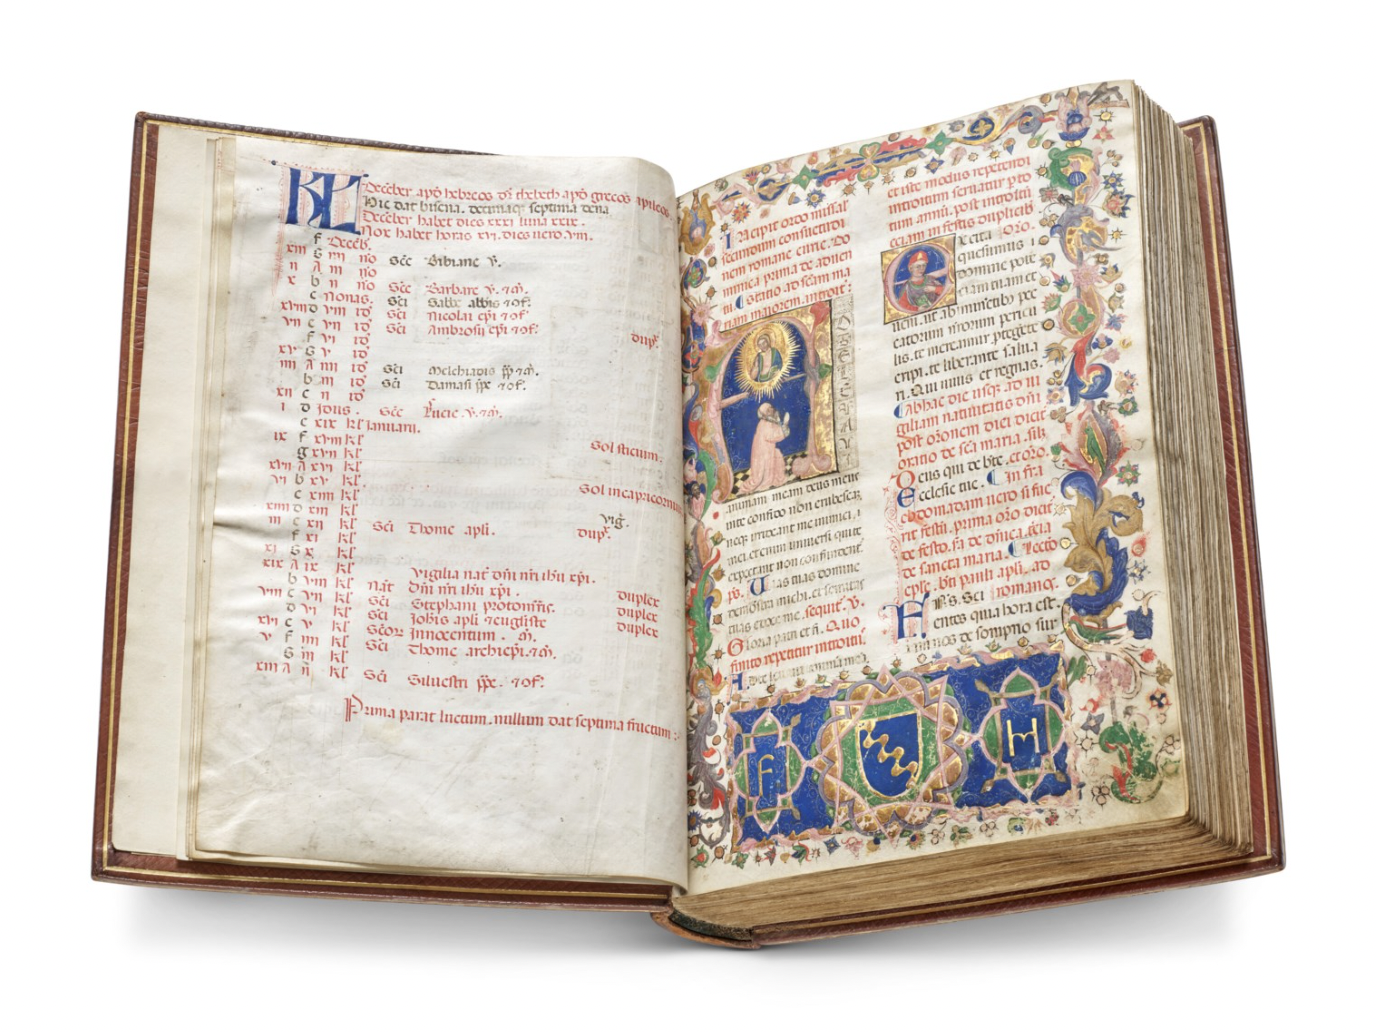 KL Deceber apd hebreos dr thebeth apd grecos apileos
Hic dat bisena. decimaq septima dena
Deceber habet dies xxxi luna xxix.
Nox habet horas xvi. dies uero viii.
f Deceb.
xiii g iiii no Sce Bibiane v.
ii A iii no
x b ii no Sce Barbare v. 7 m.
c nonas. Sci Sabbe abbis 7 of.
xviii d viii id Sci Nicolai epi 7 of.
vii e vii id Sci Ambrosii epi 7 of.
f vi id dupx.
xv g v id
iiii A iiii id Sci Melchiadis pp 7 m.
b iii id Sci Damasi ppe 7 of.
xii c ii id
i d idus. Sce Lucie v. 7 m.
e xix kl Januarii.
ix f xviii kl
g xvii kl Sol sticium.
xvii A xvi kl
vi b xv kl
c xiiii kl Sol in capricornium
xiiii d xiii kl
iii e xii kl Vig.
f xi kl Sci Thome apli. dupx.
xi g x kl
xix A ix kl
b viii kl Vigilia nat dni nri ihu xpi.
viii c viii kl Nat Dni nri ihu xpi. duplex
d vii kl Sci Stephani protomris. duplex
xvi e vi kl Sci Johis apli 7 eugliste duplex
v f iiii kl Scor Innocentum. m.
g iii kl Sci Thome archiepi. 7 m.
xiii A ii kl Sci Siluestri ppe. 7 of.
Prima parat luctum. nullum dat septima fructum
Incipit ordo missal
secundum consuetudi
nem romane curie. Do
minica prima de aduen
tu. Statio ad scam ma
riam maiorem. introit.
A
animam meam deus meus
in te confido non erubescam
neq irrideant me inimici
mei. et enim uniuersi qui te
expectant non confundent.
ps. Uias tuas domine
demostra michi. et semitas
tuas edoce me. sequit. v.
Gloria patri et fi. Quo
finito repetitur introitus
et iste modus repetendi
introitum seruatur p to
tum annu. post introitu
etiam in festis duplicib
Oro.
Excita
quesumus
domine pote
tiam tuam et
ueni. ut ab iminetib pec
catorum nrorum pericu
lis. te mereamur ptegete
eripi. te liberante salua
ri. Qui uiuis et regnas.
Ab hac die usq ad ui
giliam natiuitatis dni
post oronem diei dicit
oratio de sca maria. sub
Deus qui de bte. et oro.
Ecclesie tue. In fra
ebdomadam uero si fue
rit festi. prima oro dicit
de festo. sa de dnica. tcia
de sancta maria. Lectio
eple. bti pauli apli. ad
romanos.
Fratres. Sci
entes quia hora est
iam nos de sompno sur
F H